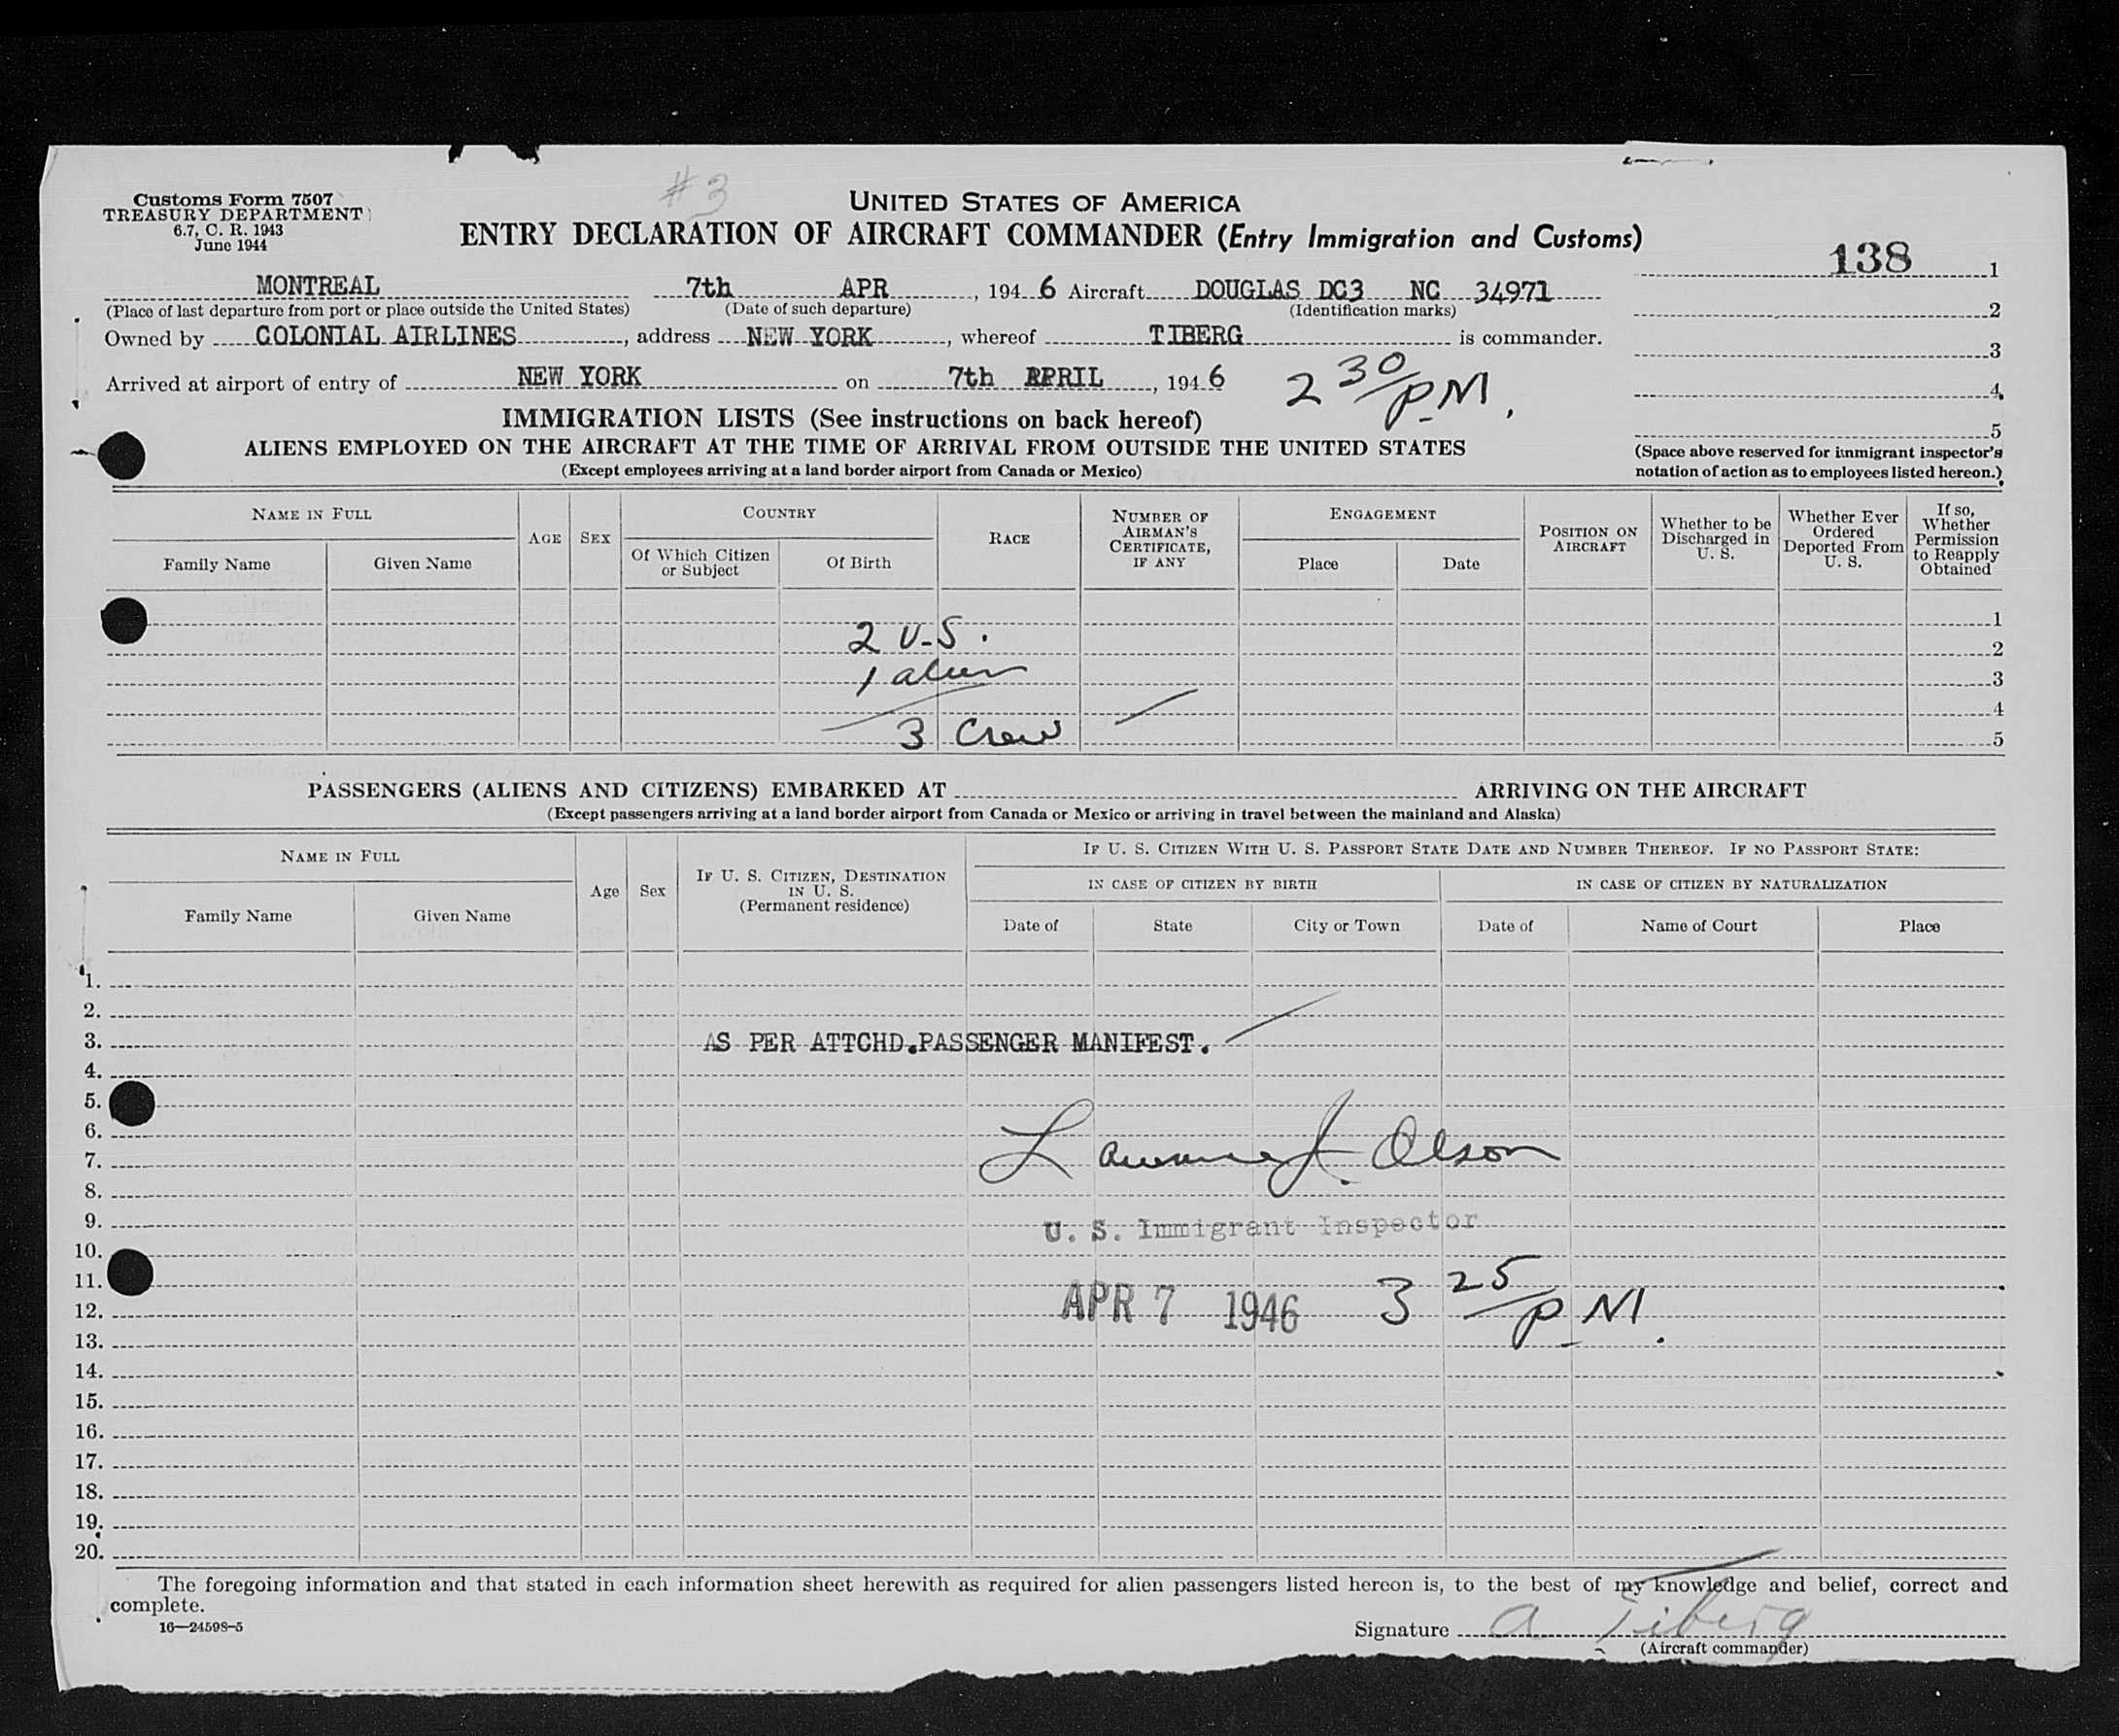 #3
Customs Form 7507
TREASURY DEPARTMENT
6.7, C. R. 1943
June 1944
UNITED STATES OF AMERICA
ENTRY DECLARATION OF AIRCRAFT COMMANDER (Entry Immigration and Customs)
138 1
MONTREAL 7th APR , 194 6 Aircraft DOUGLAS DC3 NC 34971
(Place of last departure from port or place outside the United States) (Date of such departure) (Identification marks)
2
Owned by COLONIAL AIRLINES , address NEW YORK , whereof TIBERG is commander.
3
Arrived at airport of entry of NEW YORK on 7th APRIL , 194 6 2 30/PM.
4
IMMIGRATION LISTS (See instructions on back hereof)
5
ALIENS EMPLOYED ON THE AIRCRAFT AT THE TIME OF ARRIVAL FROM OUTSIDE THE UNITED STATES
(Except employees arriving at a land border airport from Canada or Mexico)
(Space above reserved for immigrant inspector's
notation of action as to employees listed hereon.)
NAME IN FULL
Family Name Given Name
AGE
SEX
COUNTRY
Of Which Citizen
or Subject
Of Birth
RACE
NUMBER OF
AIRMAN'S
CERTIFICATE,
IF ANY
ENGAGEMENT
Place Date
POSITION ON
AIRCRAFT
Whether to be
Discharged in
U. S.
Whether Ever
Ordered
Deported From
U. S.
If so,
Whether
Permission
to Reapply
Obtained
1
2 U.S. 2
1 alien 3
4
3 Crew 5
PASSENGERS (ALIENS AND CITIZENS) EMBARKED AT ARRIVING ON THE AIRCRAFT
(Except passengers arriving at a land border airport from Canada or Mexico or arriving in travel between the mainland and Alaska)
NAME IN FULL
Family Name Given Name
Age
Sex
IF U. S. CITIZEN, DESTINATION
IN U. S.
(Permanent residence)
IF U. S. CITIZEN WITH U. S. PASSPORT STATE DATE AND NUMBER THEREOF. IF NO PASSPORT STATE:
IN CASE OF CITIZEN BY BIRTH IN CASE OF CITIZEN BY NATURALIZATION
Date of State City or Town Date of Name of Court Place
1.
2.
3. AS PER ATTCHD.PASSENGER MANIFEST.
4.
5.
6.
7. Lawrence J. Olson
8.
9. U. S. Immigrant Inspector
10.
11.
12. APR 7 1946 3 25/PM.
13.
14.
15.
16.
17.
18.
19.
20.
The foregoing information and that stated in each information sheet herewith as required for alien passengers listed hereon is, to the best of my knowledge and belief, correct and
complete.
16—24598-5
Signature A Tiberg
(Aircraft commander)